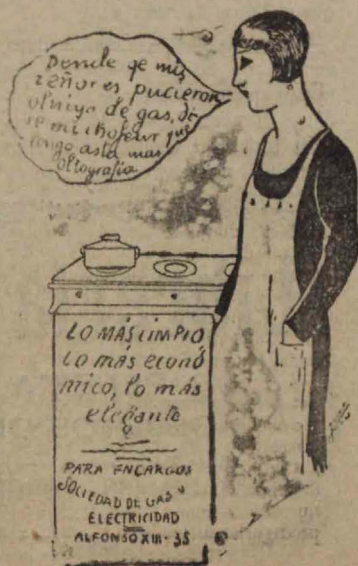 Desde qe mis
señores pucieron
olniya de gas, di
se mi chofeur que
tengo asta mas
oltografía
LO MÁS LIMPIO
Lo mas econó
mico, lo más
elegante
PARA ENCARGOS
SOCIEDAD DE GAS Y
ELECTRICIDAD
ALFONSO XIII-35